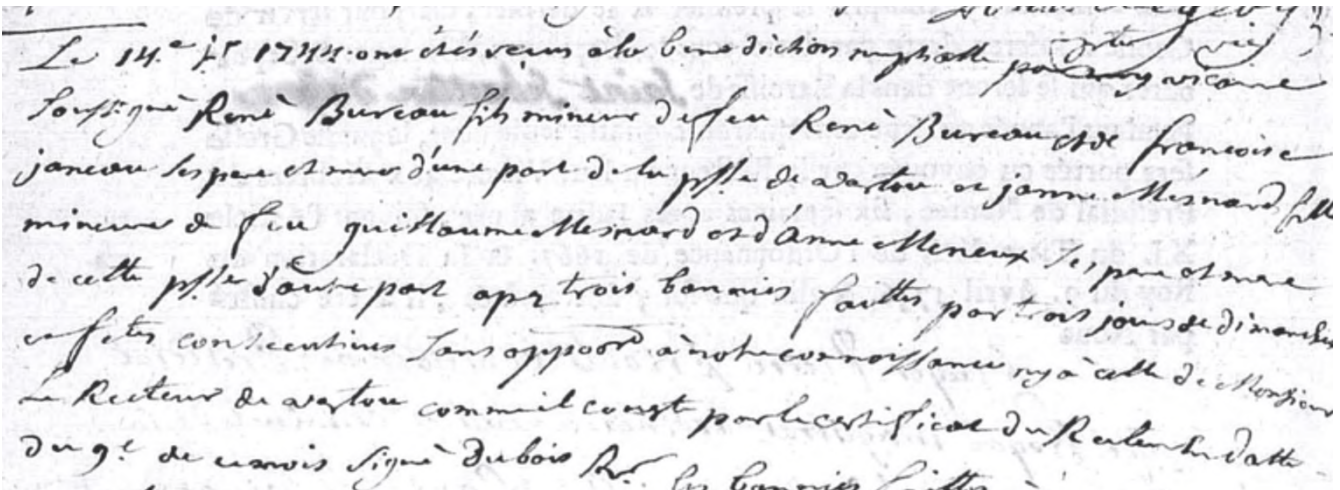 Le 14.e 7bre 1744 ont étés reçus à la benediction nuptialle par moy vicaire
Soussigné René Bureau fils mineur de feu René Bureau et de francoise
janeau ses pere et mere d'une part de la psse de vertou et janne Mesnard fille
mineure de feu guillaume Mesnard et d'Anne Meneux ses pere et mere
de cette psse d'autre part apz trois bannies faittes par trois jours de dimanches
et fêtes consecutives sans opposon à notre connoissance ny à celle de Monsieur
Le Recteur de vertou comme il conste par le certificat du Recteur datte
du 9.e de ce mois signé dubois Rr les bannies faittes